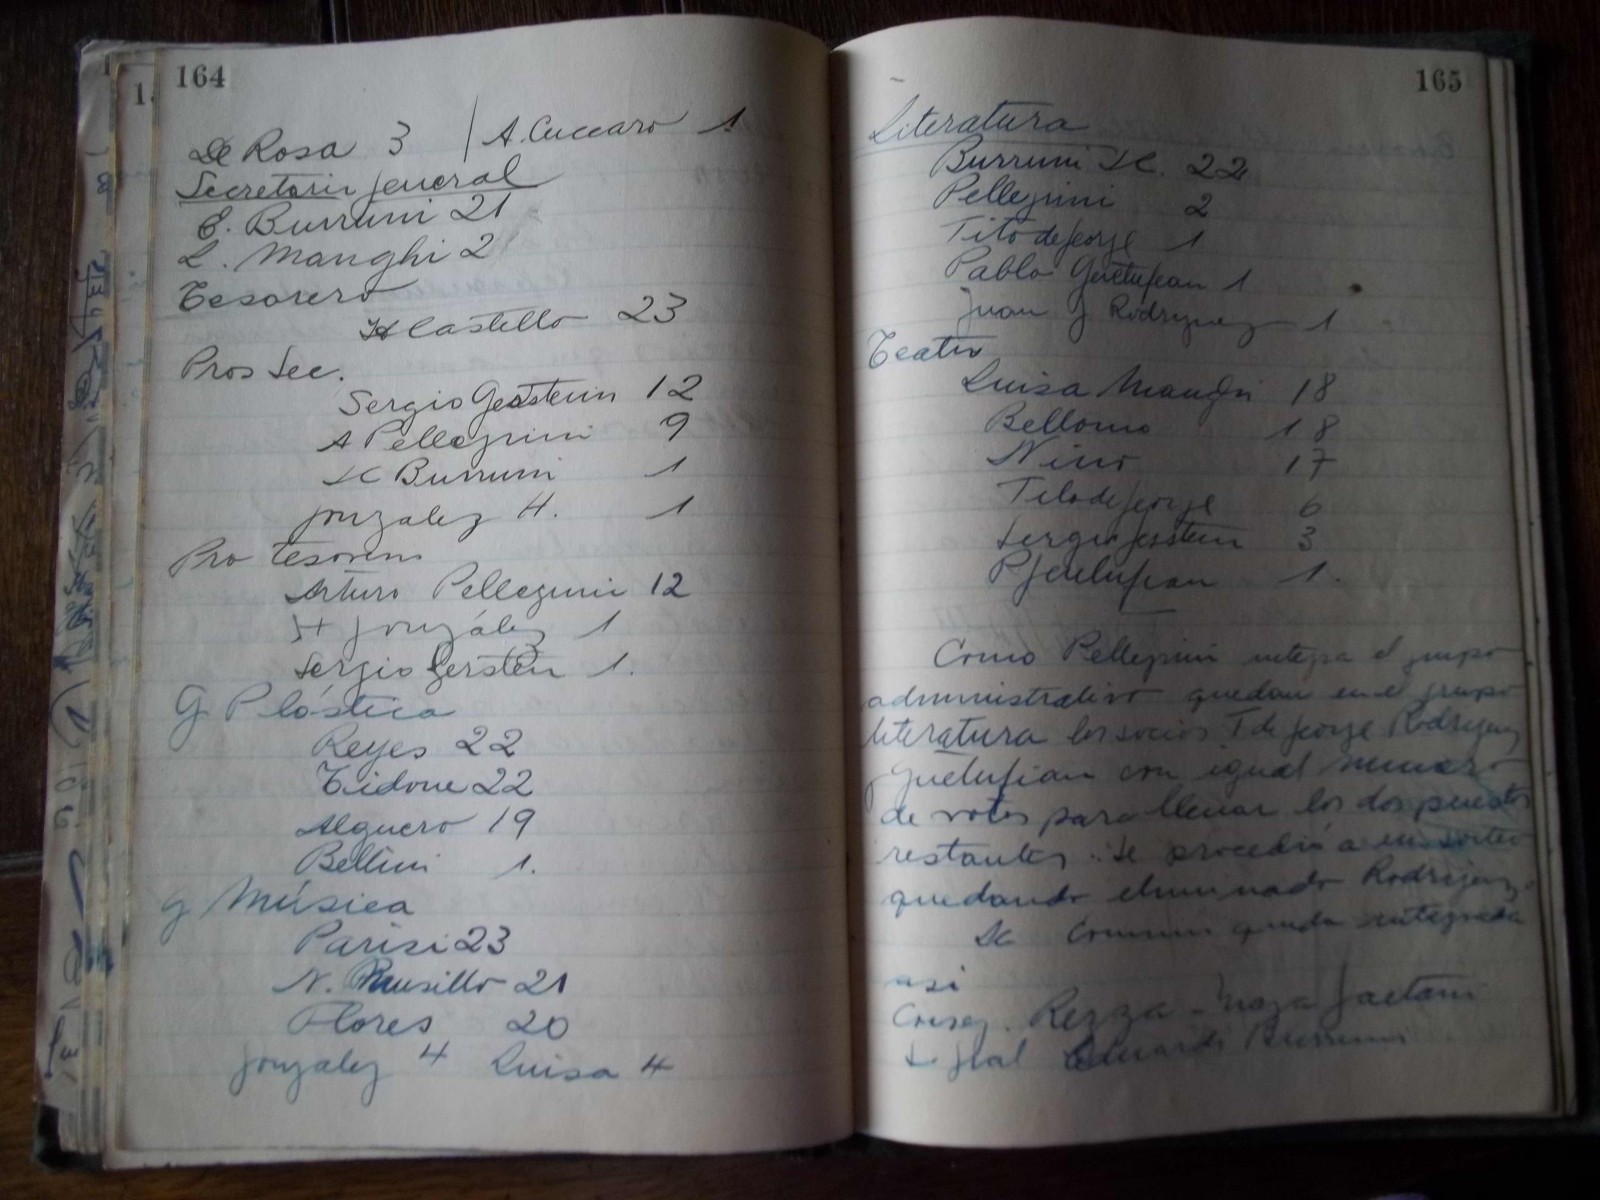 164
De Rosa 3 / A. Cuccaro 1
Secretario general
E. Burruni 21
L. Manghi 2
Tesorero
H Castello 23
Pros Sec.
Sergio Gerstein 12
A Pellegrini 9
H Burruni 1
Gonzalez H. 1
Pro tesorero
Arturo Pellegrini 12
H González 1
Sergio Gerstein 1.
G Plástica
Reyes 22
Tidone 22
Alguero 19
Bellini 1.
G Música
Parisi 23
N. Rusillo 21
Flores 20
Gonzalez 4 Luisa 4
165
Literatura
Burruni H. 22
Pellegrini 2
Tito de Jorje 1
Pablo 1
Juan J Rodriguez 1
Teatro
Luisa Manghi 18
Bellomo 18
Nino 17
Tito de Jorje 6
Sergio Gerstein 3
P 1.
Como Pellegrini integra el grupo
administrativo quedan en el grupo
literatura los socios T de Jorje Rodriguez
con igual numero
de votos para llenar los dos puestos
restantes. Se procedió a un sorteo
quedando eliminado Rodriguez.
queda integrada
asi
Rezza - Gaetani
Eduardo Burruni